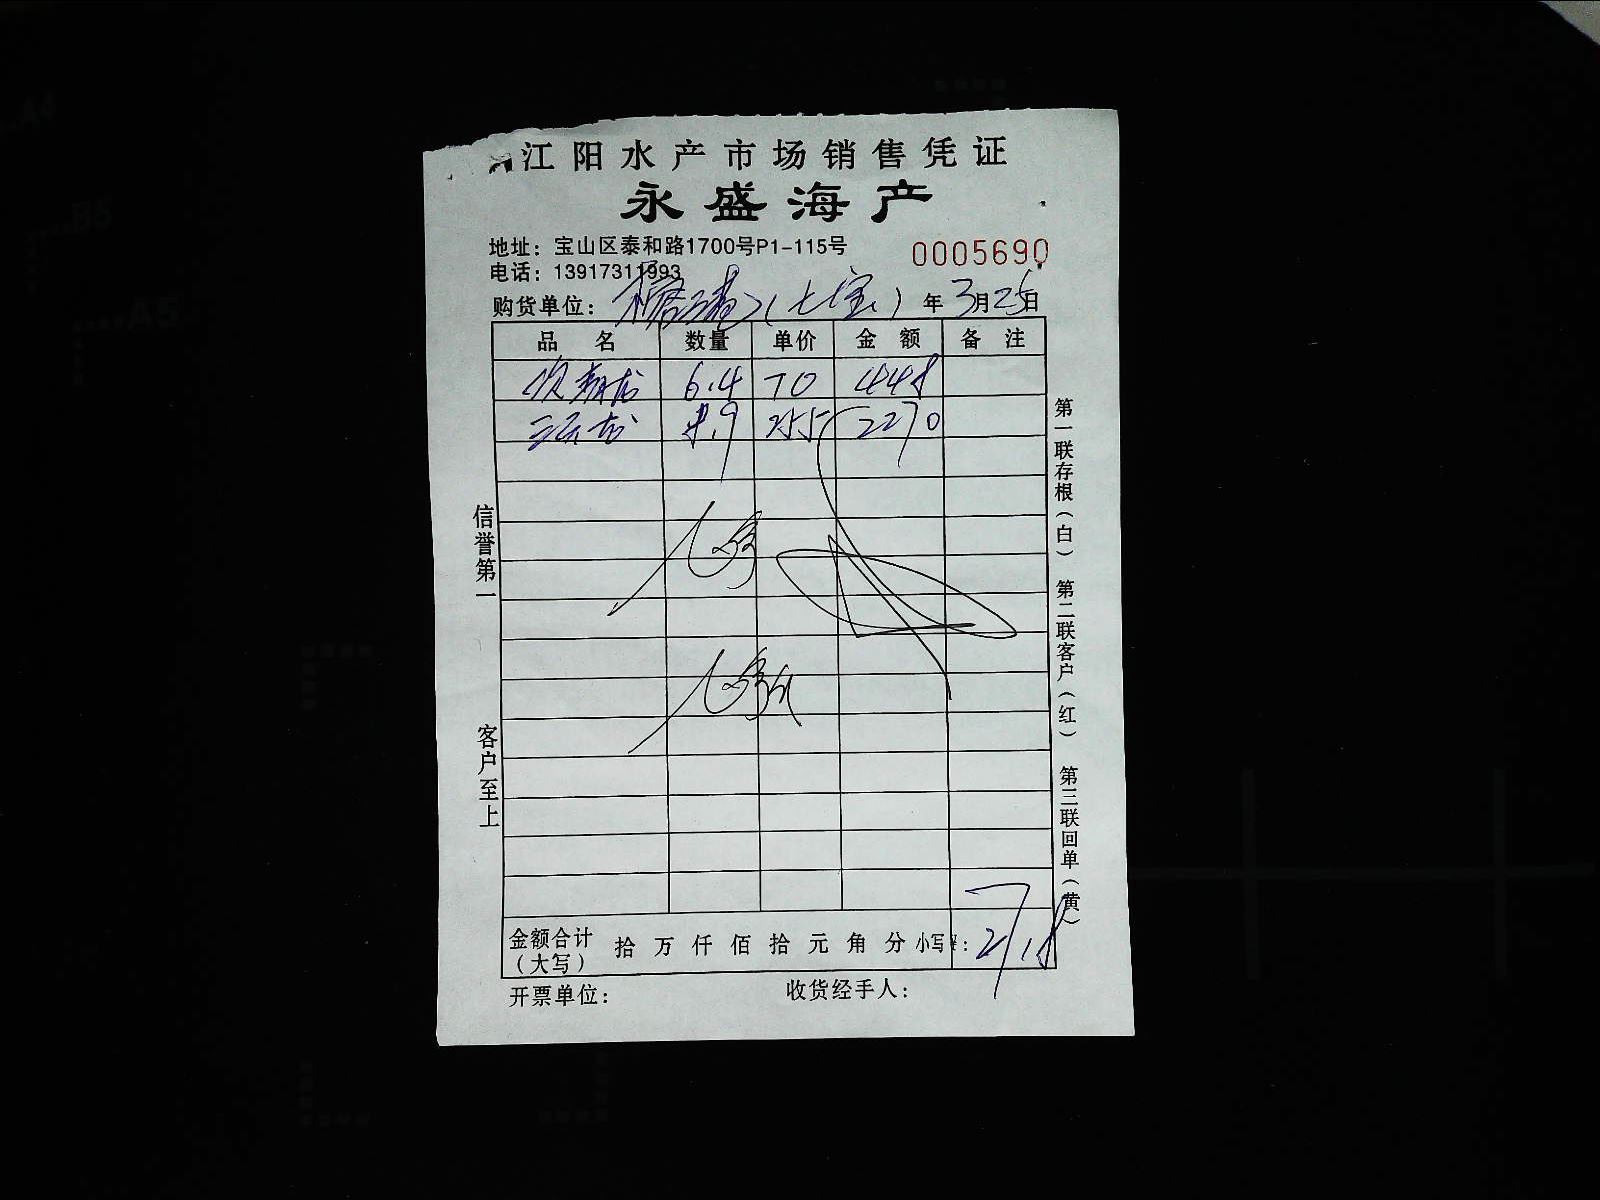 江阳水产市场销售凭证
永盛海产
地址：宝山区泰和路1700号P1-115号
0005690
电话：13917311993
购货单位： （七宝） 年 3月25日
品 名 数量 单价 金 额 备 注
6.4 70 448
8.9 255 2270
信誉第一
客户至上
第一联存根（白） 第二联客户（红） 第三联回单（黄）
金额合计（大写） 拾 万 仟 佰 拾 元 角 分 小写¥： 2718
开票单位： 收货经手人：